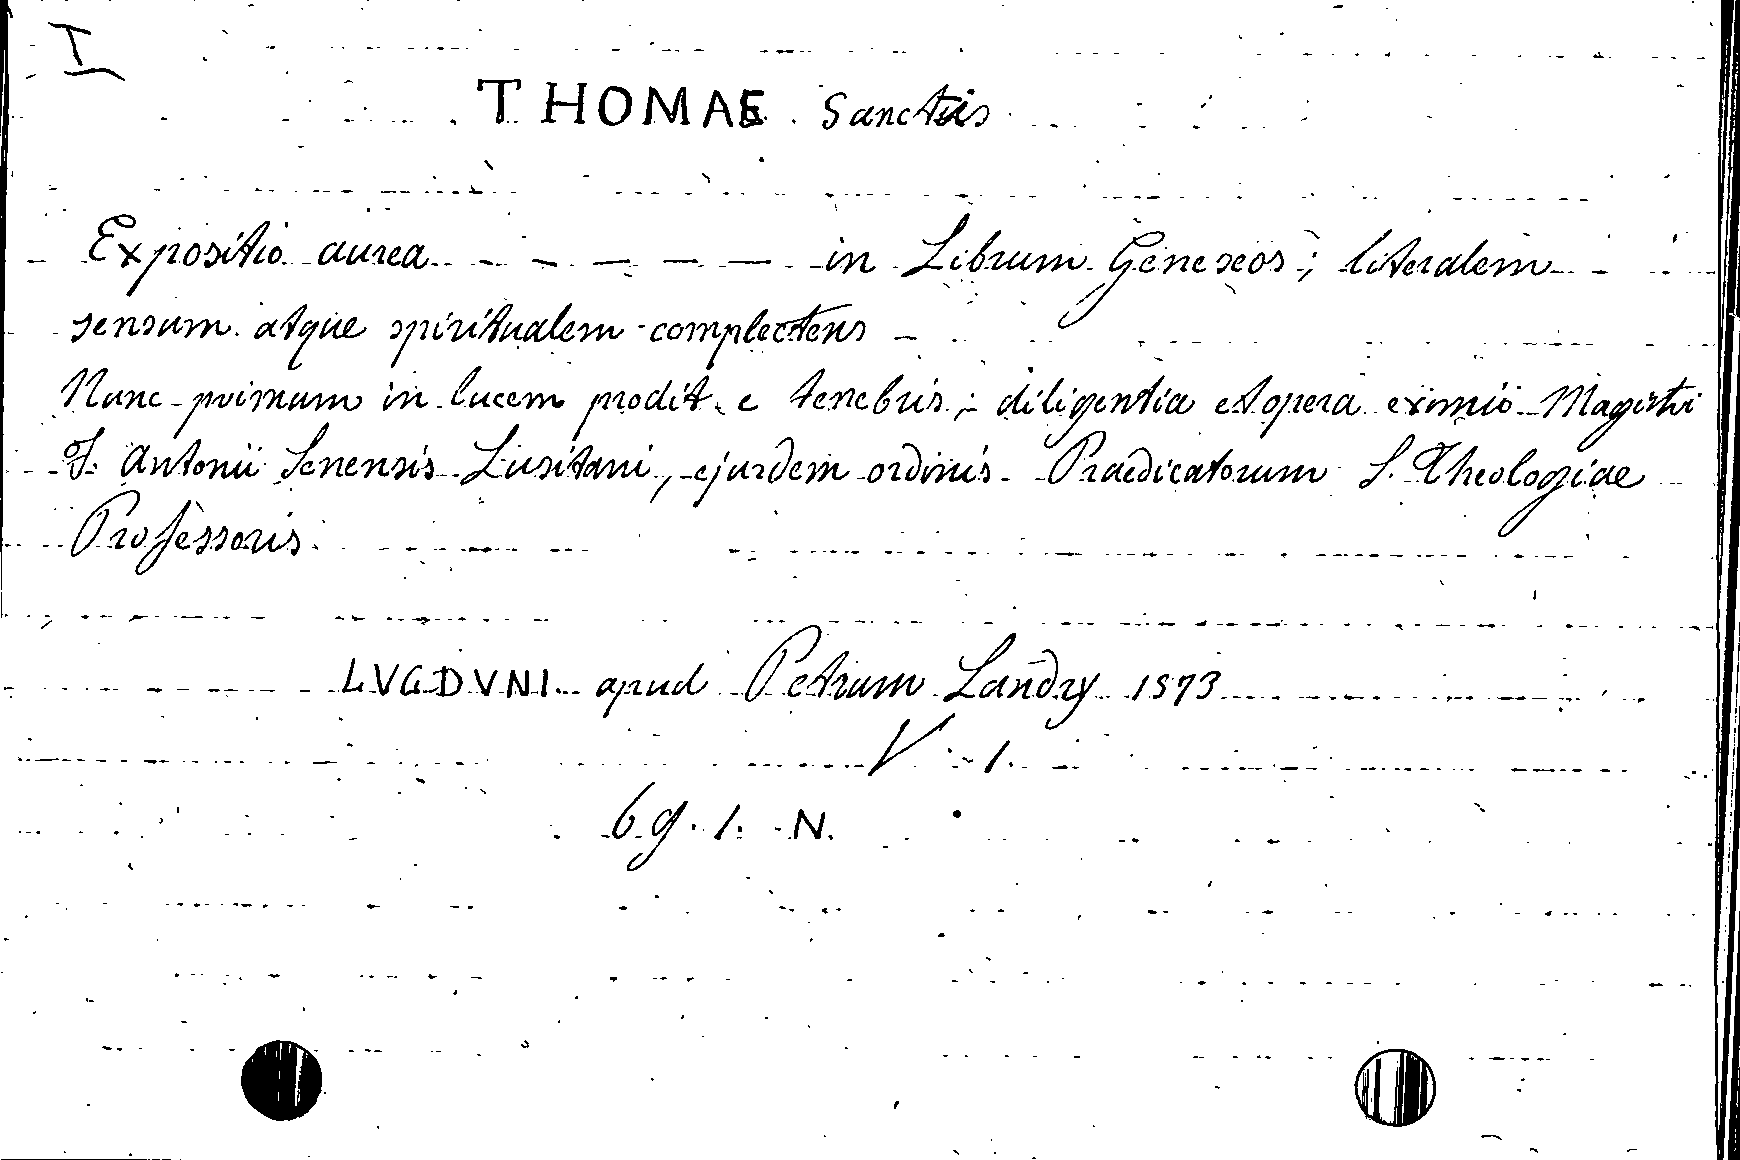 I
THOMAE Sanctus
Expositio aurea - - - - - in Librum Geneseos; literalem
sensum atque spiritualem complectens -
Nunc primum in lucem prodit e tenebris; diligentia et opera eximii Magistri
F. Antonii Senensis Lusitani, ejusdem ordinis Praedicatorum S. Theologiae
Professoris.
LVGDVNI apud Petrum Landry 1573
V. 1.
69. 1. N.